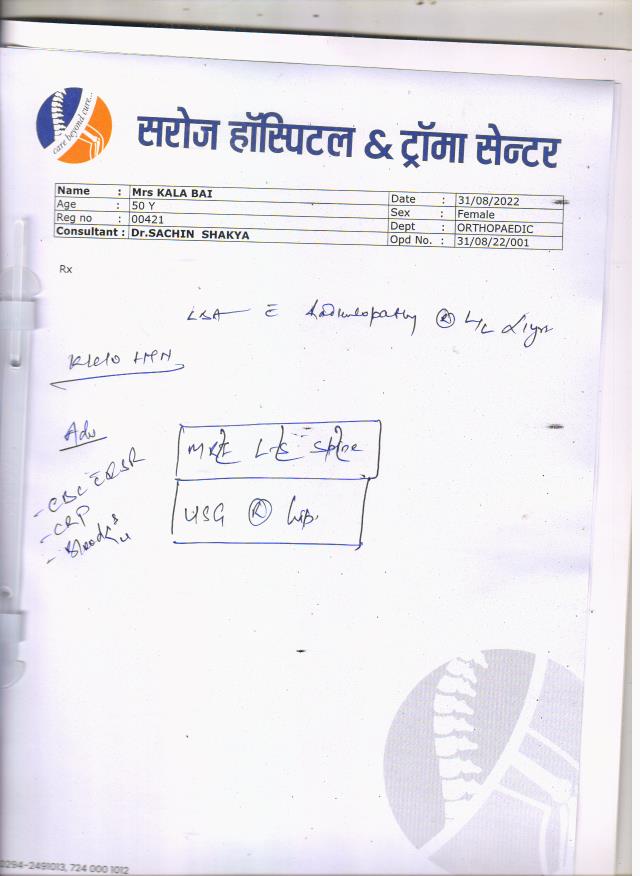 care beyond cure...
सरोज हॉस्पिटल & ट्रॉमा सेन्टर
Name : Mrs KALA BAI Date : 31/08/2022
Age : 50 Y Sex : Female
Reg no : 00421 Dept : ORTHOPAEDIC
Consultant : Dr.SACHIN SHAKYA Opd No. : 31/08/22/001
Rx
LBA c̄ Radiculopathy Ⓡ L/L
K/C/O HTN
Adv
MRI L-S Spine
- CBC ESR
- CRP
USG Ⓡ hip.
- Blood
0294-2491013, 724 000 1012